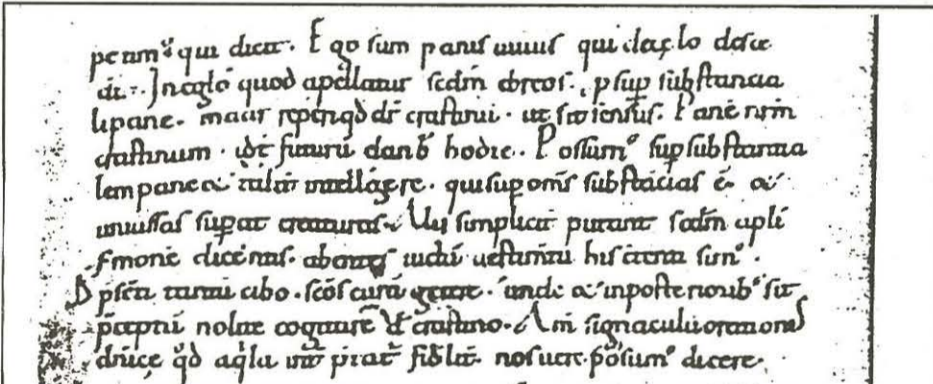 peram⁹ qui dicit. Ego sum panis uiuus qui de çelo desce
di. In eǧlō quod apellatur scdm ebreos. p sup substancia
li pane. maar repperi qd dr̄ crastinū. ut sit sensus. Panē nrm
crastinum. idē futurū da nob̄ hodie. Possum⁹ sup substantia
lem pane & alit̄ intellegere. qui sup om̄s substācias ē. &
uniuersas superat creaturas. Alii simplicit̄ putant scdm apli
s̄monē dicentis. abentes uictū uestimtū his ctenti sum⁹.
D p̄senti tantū cibo. scōs curā gerere. unde & in posteriorib⁹ sit
p̄ceptū nolite cogitare d̄ crastino. Am̄ signaculū orationis
dn̄icę qd aqila int̄ p̄tat̄ fidelit̄. nos uere possum⁹ dicere.